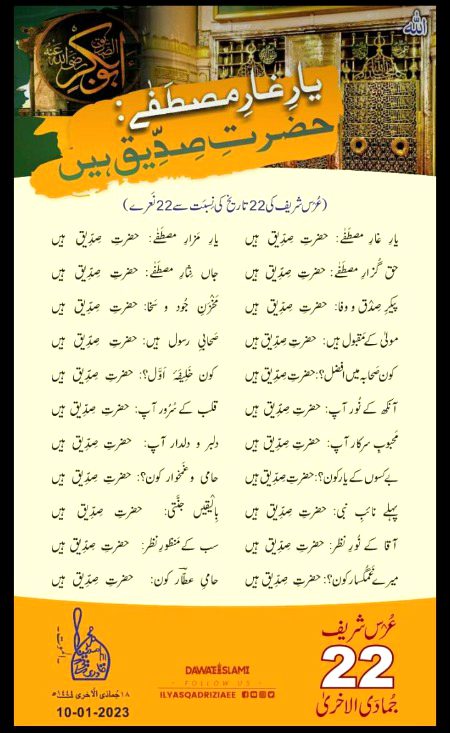 الله
ابوبکر الصدیق رضی اللہ عنہ
یارِ غارِ مصطفٰے:
حضرتِ صِدِّیق ہیں
(عُرسِ شریف کی 22 تاریخ کی نِسبَت سے 22 نعرے)
یارِ غارِ مصطفٰے: حضرتِ صِدِّیق ہیں یارِ مزارِ مصطفٰے: حضرتِ صِدِّیق ہیں
حق گُزارِ مصطفٰے: حضرتِ صِدِّیق ہیں جاں نِثارِ مصطفٰے: حضرتِ صِدِّیق ہیں
پیکرِ صِدْق و وفا: حضرتِ صِدِّیق ہیں مَخْزَنِ جُود و سخا: حضرتِ صِدِّیق ہیں
مولیٰ کے مقبول ہیں: حضرتِ صِدِّیق ہیں صحابیِ رسول ہیں: حضرتِ صِدِّیق ہیں
کون صحابہ میں افضل؟: حضرتِ صِدِّیق ہیں کون خلیفۂ اَوَّل؟: حضرتِ صِدِّیق ہیں
آنکھ کے نُور آپ: حضرتِ صِدِّیق ہیں قلب کے سُرور آپ: حضرتِ صِدِّیق ہیں
محبوبِ سرکار آپ: حضرتِ صِدِّیق ہیں دلبر و دلدار آپ: حضرتِ صِدِّیق ہیں
بے کسوں کے یار کون؟: حضرتِ صِدِّیق ہیں حامی و غمخوار کون؟: حضرتِ صِدِّیق ہیں
پہلے نائبِ نبی: حضرتِ صِدِّیق ہیں بِالْیقیں جنَّتی: حضرتِ صِدِّیق ہیں
آقا کے نُورِ نظر: حضرتِ صِدِّیق ہیں سب کے منظورِ نظر: حضرتِ صِدِّیق ہیں
میرے غمگسار کون؟: حضرتِ صِدِّیق ہیں حامیِ عطّار کون: حضرتِ صِدِّیق ہیں
عُرس شریف
22
جُمادَی الاُخریٰ
DAWATEISLAMI
FOLLOW US
ILYASQADRIZIAEE
۱۸ جُمادَی الْاُخریٰ ۱۴۴۴ھ
10-01-2023